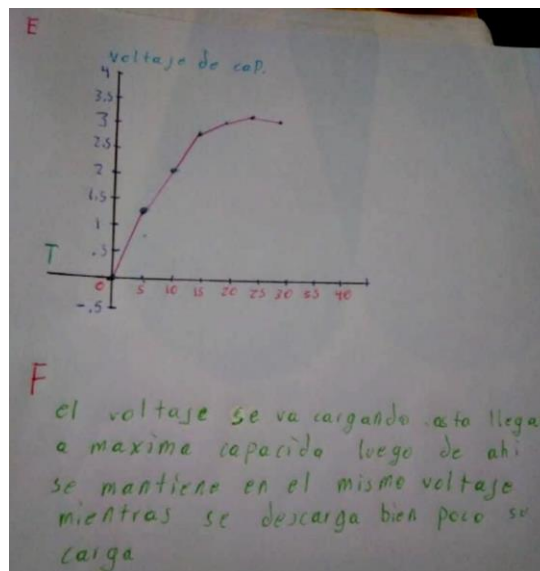 E
voltaje de cap.
4
3.5
3
2.5
2
1.5
1
.5
T
0 5 10 15 20 25 30 35 40
-.5
F
el voltaje se va cargando asta llega
a maxima capacida luego de ahi
se mantiene en el mismo voltaje
mientras se descarga bien poco su
carga